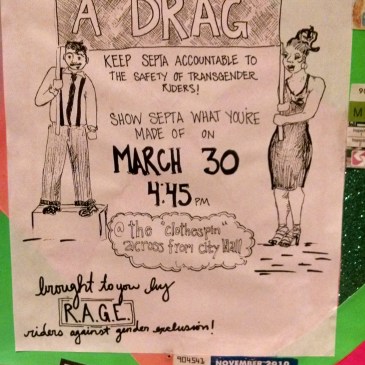 A DRAG
KEEP SEPTA ACCOUNTABLE TO
THE SAFETY OF TRANSGENDER
RIDERS!
SHOW SEPTA WHAT YOU'RE
MADE OF ON
MARCH 30
4:45 PM
@ the "clothespin"
across from city Hall
brought to you by
R.A.G.E.
riders against gender exclusion!
904541
NOVEMBER 2010